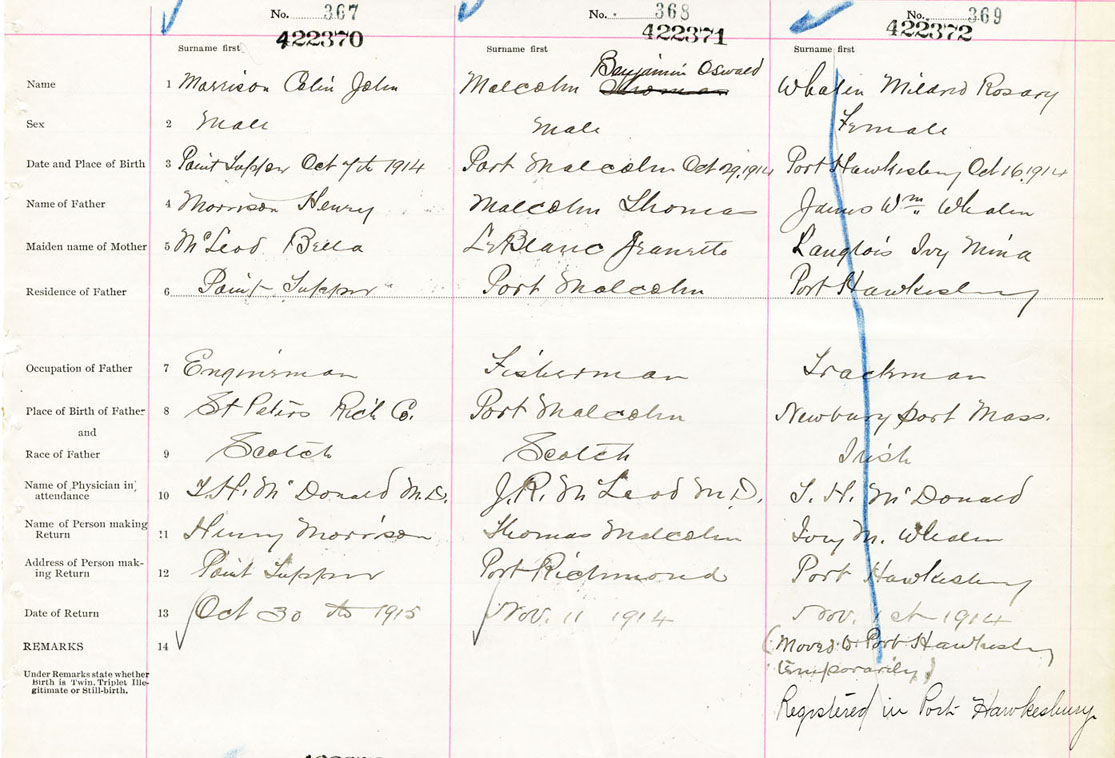 No. 367 No. 368 No. 369
422370 422371 422372
Surname first Surname first Surname first
Benjamin Oswald
Name 1 Morrison Colin John Malcolm Thomas Whalen Mildred Rosary
Sex 2 Male Male Female
Date and Place of Birth 3 Point Tupper Oct 7th 1914 Port Malcolm Oct 29, 1914 Port Hawkesbury Oct 16, 1914
Name of Father 4 Morrison Henry Malcolm Thomas James Wm Whalen
Maiden name of Mother 5 McLeod Bella LeBlanc Jeanette Langlois Ivy Mina
Residence of Father 6 Point Tupper Port Malcolm Port Hawkesbury
Occupation of Father 7 Enginsman Fisherman Trackman
Place of Birth of Father 8 St Peters Rich Co. Port Malcolm Newbury port Mass.
and
Race of Father 9 Scotch Scotch Irish
Name of Physician in
attendance 10 T.H. McDonald M.D. J.R. McLeod M.D. T. H. McDonald
Name of Person making
Return 11 Henry Morrison Thomas Malcolm Ivy M. Whalen
Address of Person mak-
ing Return 12 Point Tupper Port Richmond Port Hawkesbury
Date of Return 13 Oct 30 th 1915 Nov. 11 1914 Nov. 1st 1914
REMARKS 14 (Moved to Port Hawkesbury
temporarily)
Under Remarks state whether
Birth is Twin, Triplet Ille-
gitimate or Still-birth.
Registered in Port Hawkesbury